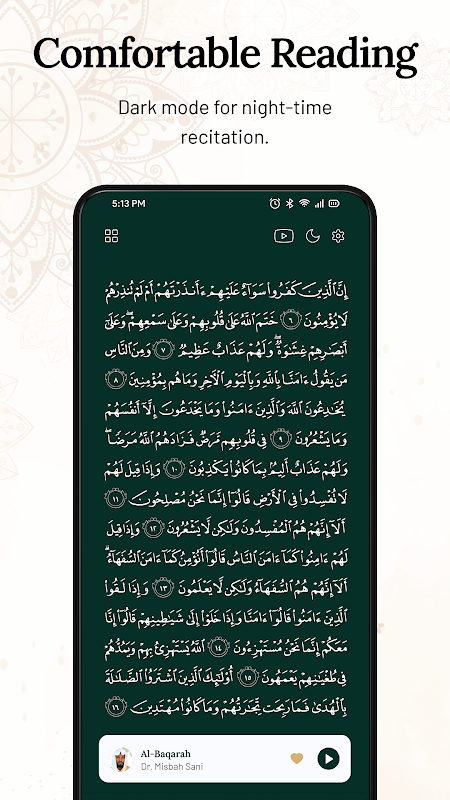 Comfortable Reading
Dark mode for night-time
recitation.
5:13 PM
إِنَّ ٱلَّذِينَ كَفَرُوا۟ سَوَآءٌ عَلَيْهِمْ ءَأَنذَرْتَهُمْ أَمْ لَمْ تُنذِرْهُمْ
لَا يُؤْمِنُونَ ٦ خَتَمَ ٱللَّهُ عَلَىٰ قُلُوبِهِمْ وَعَلَىٰ سَمْعِهِمْ ۖ وَعَلَىٰٓ
أَبْصَـٰرِهِمْ غِشَـٰوَةٌ ۖ وَلَهُمْ عَذَابٌ عَظِيمٌ ٧ وَمِنَ ٱلنَّاسِ
مَن يَقُولُ ءَامَنَّا بِٱللَّهِ وَبِٱلْيَوْمِ ٱلْـَٔاخِرِ وَمَا هُم بِمُؤْمِنِينَ ٨
يُخَـٰدِعُونَ ٱللَّهَ وَٱلَّذِينَ ءَامَنُوا۟ وَمَا يَخْدَعُونَ إِلَّآ أَنفُسَهُمْ
وَمَا يَشْعُرُونَ ٩ فِى قُلُوبِهِم مَّرَضٌ فَزَادَهُمُ ٱللَّهُ مَرَضًا ۖ
وَلَهُمْ عَذَابٌ أَلِيمٌۢ بِمَا كَانُوا۟ يَكْذِبُونَ ١٠ وَإِذَا قِيلَ لَهُمْ
لَا تُفْسِدُوا۟ فِى ٱلْأَرْضِ قَالُوٓا۟ إِنَّمَا نَحْنُ مُصْلِحُونَ ١١
أَلَآ إِنَّهُمْ هُمُ ٱلْمُفْسِدُونَ وَلَـٰكِن لَّا يَشْعُرُونَ ١٢ وَإِذَا قِيلَ
لَهُمْ ءَامِنُوا۟ كَمَآ ءَامَنَ ٱلنَّاسُ قَالُوٓا۟ أَنُؤْمِنُ كَمَآ ءَامَنَ ٱلسُّفَهَآءُ ۗ
أَلَآ إِنَّهُمْ هُمُ ٱلسُّفَهَآءُ وَلَـٰكِن لَّا يَعْلَمُونَ ١٣ وَإِذَا لَقُوا۟
ٱلَّذِينَ ءَامَنُوا۟ قَالُوٓا۟ ءَامَنَّا وَإِذَا خَلَوْا۟ إِلَىٰ شَيَـٰطِينِهِمْ قَالُوٓا۟ إِنَّا
مَعَكُمْ إِنَّمَا نَحْنُ مُسْتَهْزِءُونَ ١٤ ٱللَّهُ يَسْتَهْزِئُ بِهِمْ وَيَمُدُّهُمْ
فِى طُغْيَـٰنِهِمْ يَعْمَهُونَ ١٥ أُو۟لَـٰٓئِكَ ٱلَّذِينَ ٱشْتَرَوُا۟ ٱلضَّلَـٰلَةَ
بِٱلْهُدَىٰ فَمَا رَبِحَت تِّجَـٰرَتُهُمْ وَمَا كَانُوا۟ مُهْتَدِينَ ١٦
Al-Baqarah
Dr. Misbah Sani